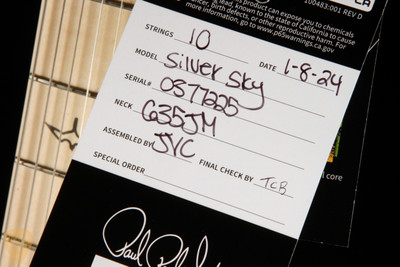 100483:001 REV D
product can expose you to chemicals
lead, known to the State of California to cause
cancer, birth defects, or other reproductive harm. For
more information, go to www.p65warnings.ca.gov
STRINGS 10 DATE 1-8-24
MODEL Silver Sky
SERIAL# 0377225
NECK G35JM
ASSEMBLED BY JVC FINAL CHECK BY TCB
SPECIAL ORDER
al core
Paul